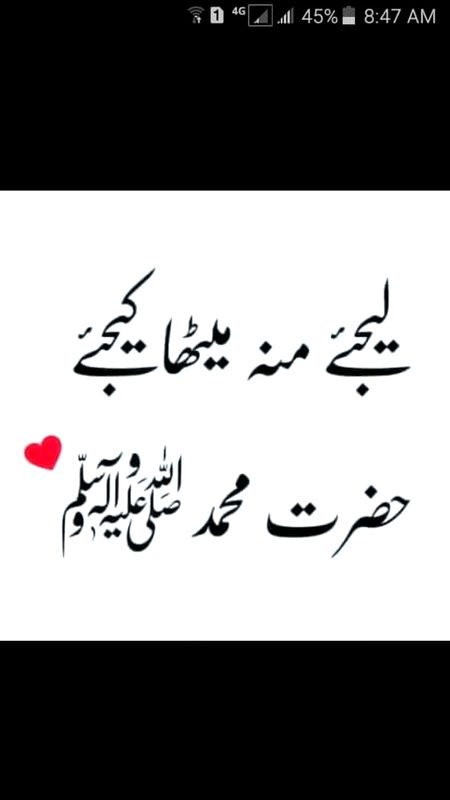 1 4G 45% 8:47 AM
لیجئے منہ میٹھا کیجئے
حضرت محمد صلی اللہ علیہ وآلہ وسلم